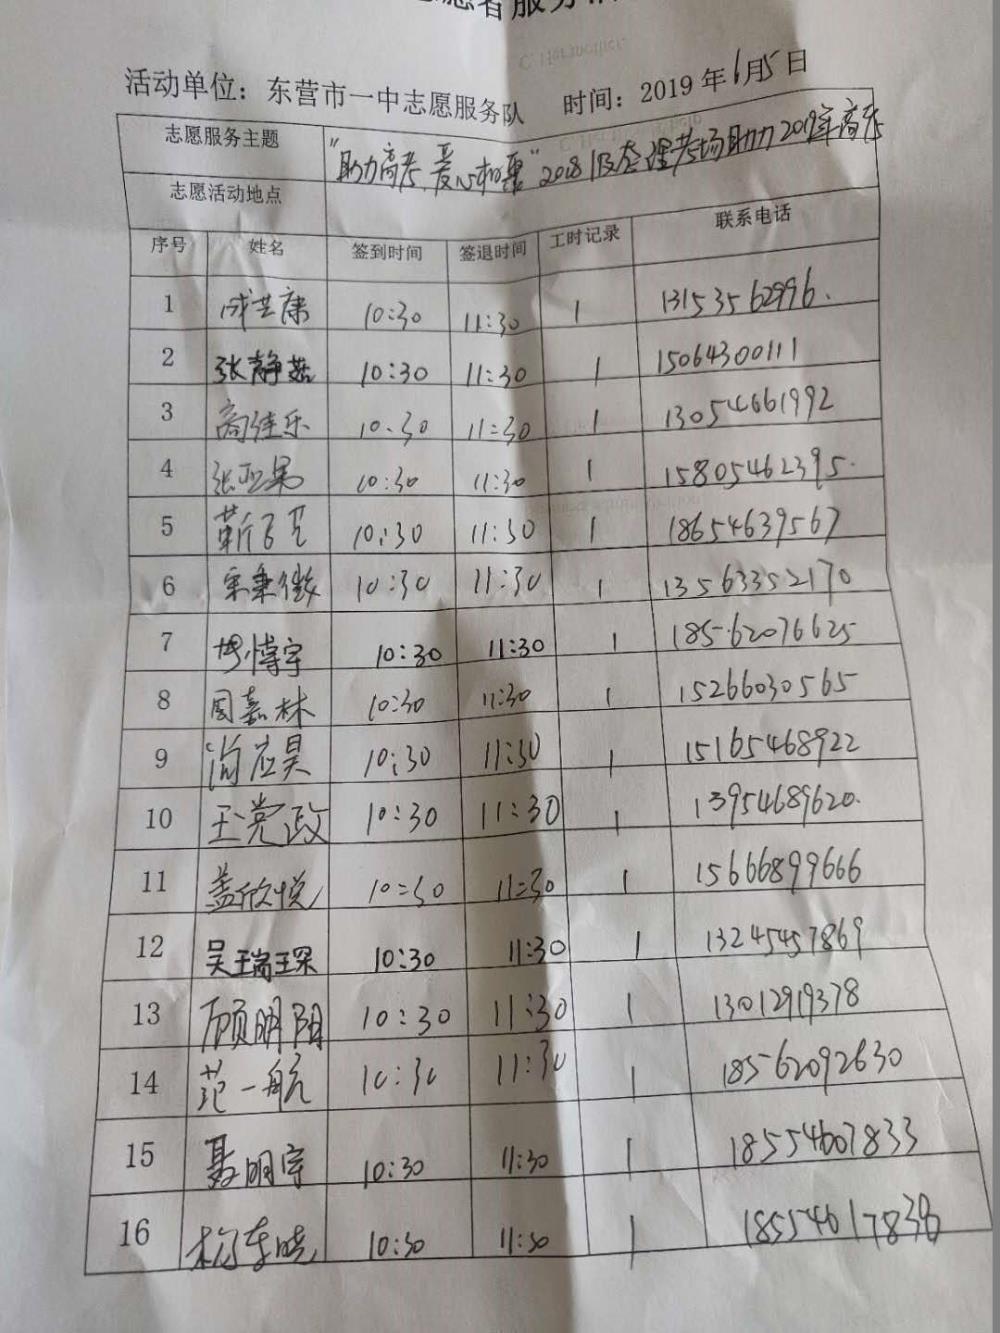 志愿者服务
活动单位：东营市一中志愿服务队 时间：2019年6月5日
志愿服务主题 "助力高考,爱心相惠"2018级整理考场助力2019年高考
志愿活动地点
序号 姓名 签到时间 签退时间 工时记录 联系电话
1 成芸康 10:30 11:30 1 13153562996.
2 张静茹 10:30 11:30 1 15064300111
3 商佳乐 10:30 11:30 1 13054661992
4 张 10:30 11:30 1 15805462395.
5 靳 10:30 11:30 1 18654639567
6 宋秉徽 10:30 11:30 1 13563352170
7 博宇 10:30 11:30 1 18562076625
8 周嘉林 10:30 11:30 1 15266030565
9 应昊 10:30 11:30 1 15165468922
10 王党政 10:30 11:30 1 13954689620.
11 盖欣悦 10:30 11:30 1 15666899666
12 吴瑞琛 10:30 11:30 1 13245457869
13 顾明阳 10:30 11:30 1 13012919378
14 范一航 10:30 11:30 1 18562092630
15 聂明宇 10:30 11:30 1 18554607833
16 杨春晓 10:30 11:30 1 18554617838